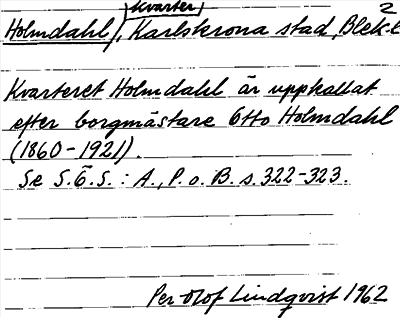 kvarter, 2
Holmdahl, Karlskrona stad, Blek-e
Kvarteret Holmdahl är uppkallat
efter borgmästare Otto Holmdahl
(1860-1921).
Se S.Ö.S.: A., P. o. B. s. 322-323.
Per-Olof Lindqvist 1962